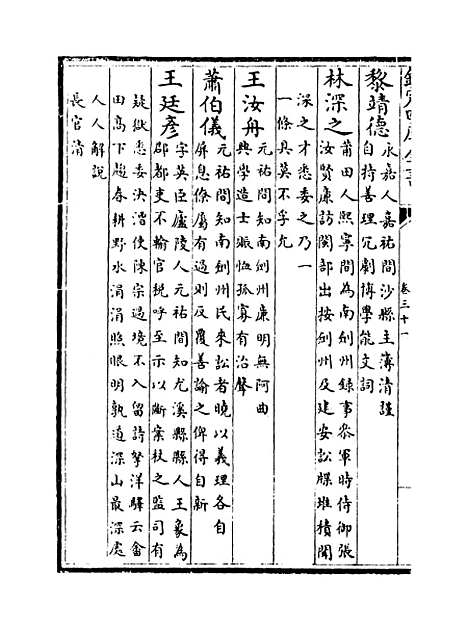 欽定四庫全書
卷三十一
黎靖德
永嘉人嘉祐間沙縣主簿清謹
自持善理冗劇博學能文詞
林深之
莆田人熙寧間為南劍州錄事參軍時侍御張
汝賢廉訪閩部出按劍州及建安訟牒堆積聞
深之才悉委之乃一
一條具莫不孚允
王汝舟
元祐間知南劍州廉明無阿曲
興學造士賑恤孤寡有治聲
蕭伯儀
元祐間知南劍州民來訟者曉以義理各自
屏息僚屬有過則反覆善諭之俾得自新
王廷彥
字英臣廬陵人元祐間知尤溪縣縣人王象為
郎都吏不輸官稅呼至示以斷案杖之監司有
疑獄悉委決漕使陳宗過境不入留詩孥洋驛云畬
田高下趂春耕野水涓涓照眼明孰道深山最深處
人人解說
長官清